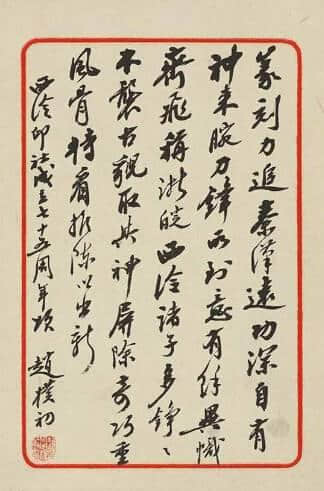 篆刻力追秦漢遠功深自有
神来腕刀鋒所到意有餘異幟
齊飛稱浙皖西泠諸子多錚〻
不襲古貌取其神屏除奇巧重
風骨推陳以出新
西泠印社成立七十五周年頌
趙樸初